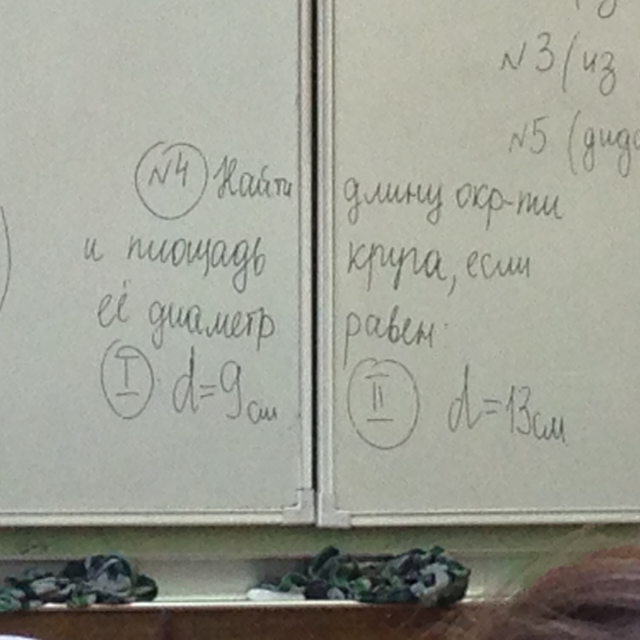 N3 (из
N5 (
N4 Найти длину окр-ти
и площадь круга, если
её диаметр равен:
I d=9см II d=13см